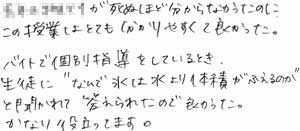 が死ぬほど分からなかったのに
この授業はとても分かりやすくて良かった。
バイトで個別指導をしているとき、
生徒に"なんで氷は水より体積がふえるのか"
と聞かれて答えられたので良かった。
かなり役立ってます。